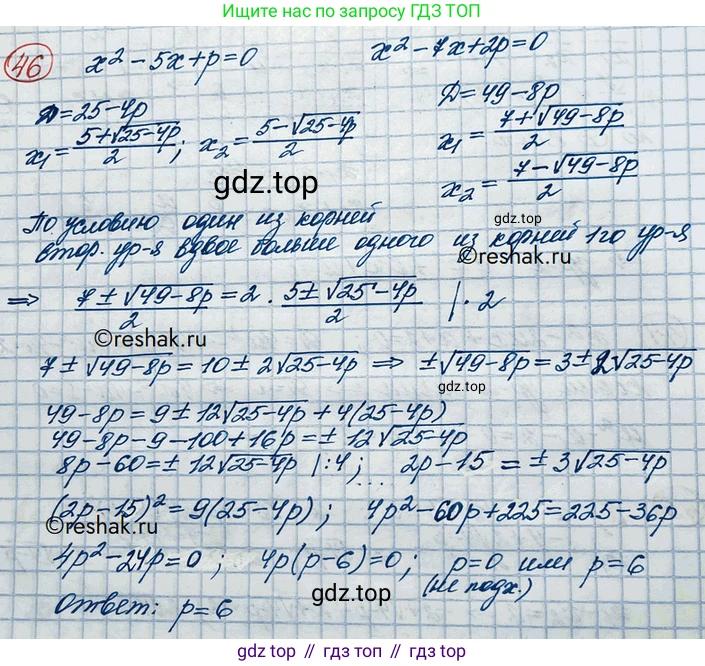 Ищите ответы по запросу ГДЗ ТОП
46 x² − 5x + p = 0     x² − 7x + 2p = 0
Д = 25 − 4p     Д = 49 − 8p
x₁ = (5 + √(25 − 4p))/2; x₂ = (5 − √(25 − 4p))/2     x₁ = (7 + √(49 − 8p))/2
x₂ = (7 − √(49 − 8p))/2
gdz.top
По условию один из корней
втор. ур-я вдвое больше одного из корней 1го ур-я
©reshak.ru
⇒ (7 ± √(49 − 8p))/2 = 2 · (5 ± √(25 − 4p))/2 | · 2
©reshak.ru
7 ± √(49 − 8p) = 10 ± 2√(25 − 4p) ⇒ ±√(49 − 8p) = 3 ± 2√(25 − 4p)
49 − 8p = 9 ± 12√(25 − 4p) + 4(25 − 4p)
49 − 8p − 9 − 100 + 16p = ± 12√(25 − 4p)
8p − 60 = ± 12√(25 − 4p) | : 4; ... 2p − 15 = ± 3√(25 − 4p)
(2p − 15)² = 9(25 − 4p); 4p² − 60p + 225 = 225 − 36p
©reshak.ru
4p² − 24p = 0; 4p(p − 6) = 0; p = 0 или p = 6
(не подх.)
Ответ: p = 6
gdz.top
gdz.top // gdz.top // gdz.top // gdz.top